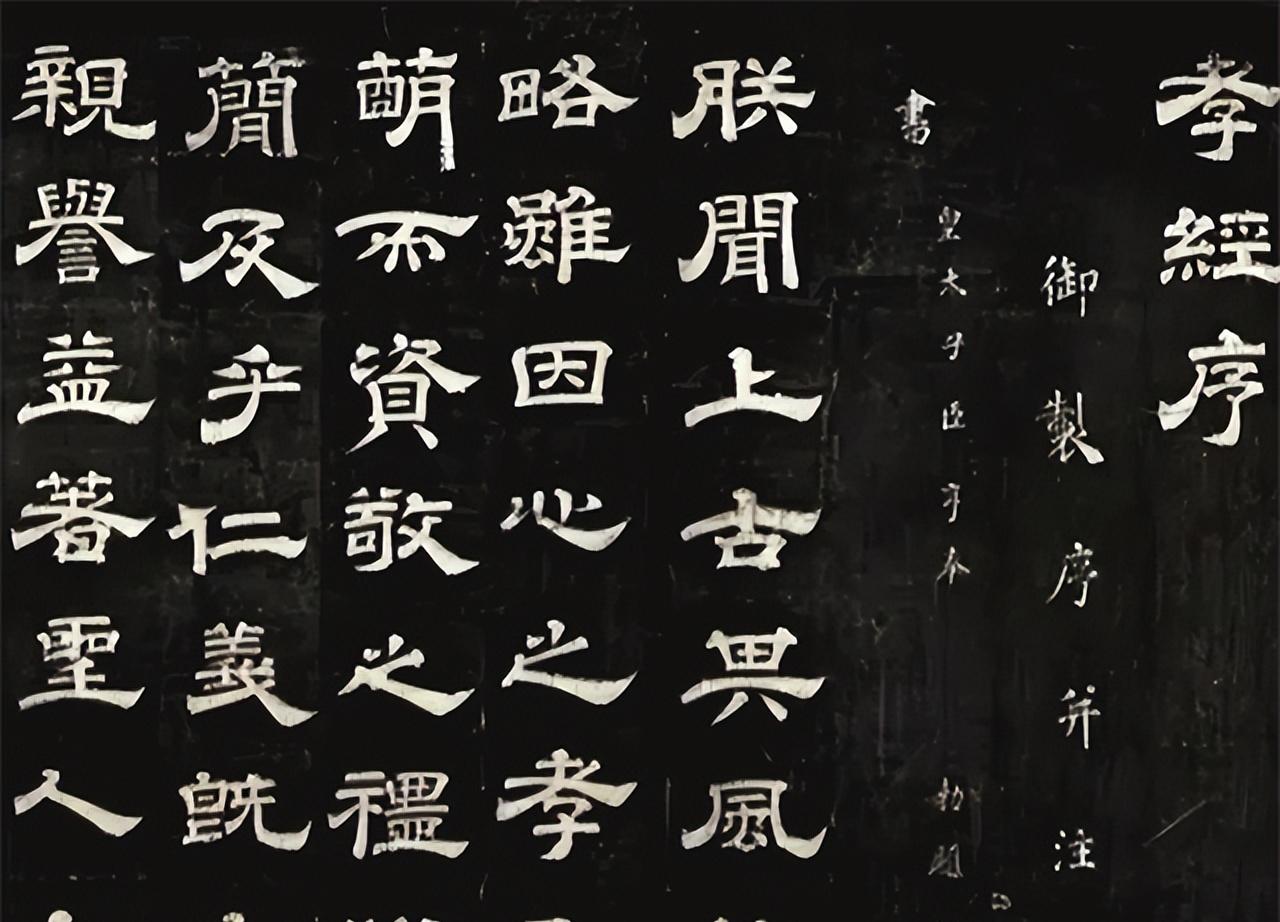 孝經序
御製序并注
皇太子臣亨奉 勅題
書
朕聞上古其風
略雖因心之孝
萌而資敬之禮
簡及乎仁義既
親譽益著聖人